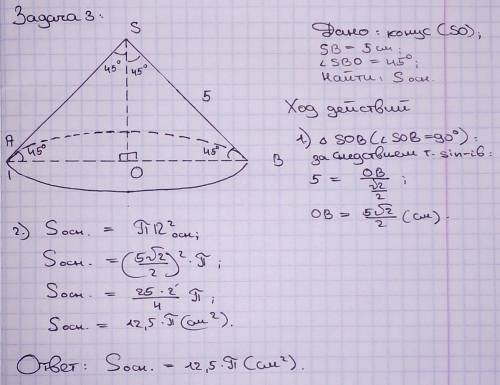 Задача 3:
S
45° 45°
5
A
45° 45°
1
O
B
Дано: конус (SO);
SB = 5 см;
∠SBO = 45°;
Найти: Sосн.
Ход действий
1) △ SOB (∠SOB = 90°):
за следствием т. sin-ів:
5 = OB / (√2/2) ;
OB = 5√2/2 (см).
2.) Sосн. = πR²осн;
Sосн. = (5√2/2)² · π;
Sосн. = 25·2/4 π;
Sосн. = 12,5·π(см²).
Ответ: Sосн. = 12,5·π(см²).